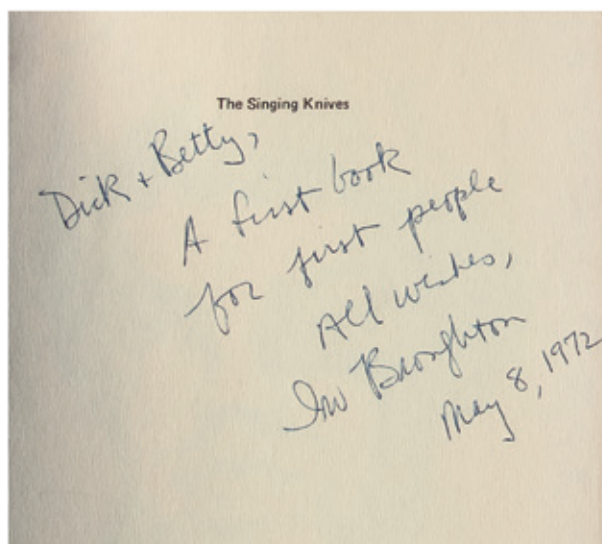 The Singing Knives
Dick + Betty,
A first book
for first people
All wishes,
Irv Broughton
May 8, 1972